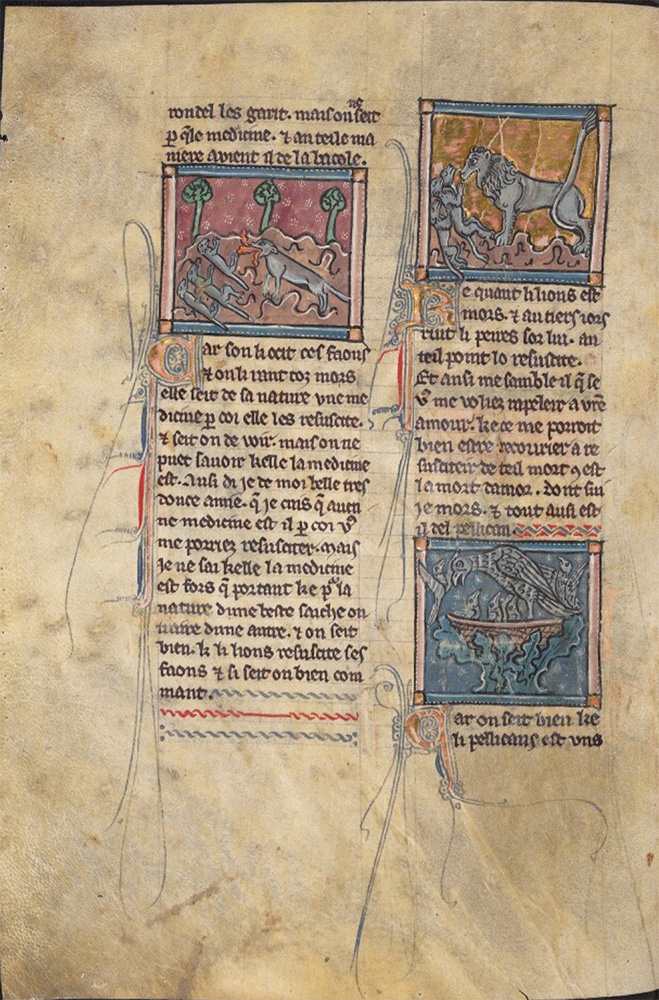 rondel les garit. mais on ne seit
p qle medicine. & an teile ma
niere avient il de la bacole.
Car son li ocit ces faons
& on li rant toz mors
elle seit de sa nature une me
dicine p coi elle les resuscite.
& seit on de voir. mais on ne
puet savoir kelle la medicine
est. Ausi di je de moi belle tres
douce amie. q je cuis q aucu
ne medicine est il p coi v9
me porriez resusciter. Mais
je ne sai kelle la medicine
est fors q portant ke p la
nature dune beste saiche on
dune autre. & on seit
bien. k li lions resuscite ses
faons & si seit on bien com
mant.
Ke quant li lions est
mors. & au tiers jors
ruit li peires sor lui. an
teil point lo resuscite.
Et ansi me samble il q se
v9 me voliez rapeleir a vre
amour. ke ce me porroit
bien estre recourier a re
susciteir de teil mort 9 est
la mort damor. dont sui
je mors. & tout ausi est
il del pellican.
Car on seit bien ke
li pellicans est uns